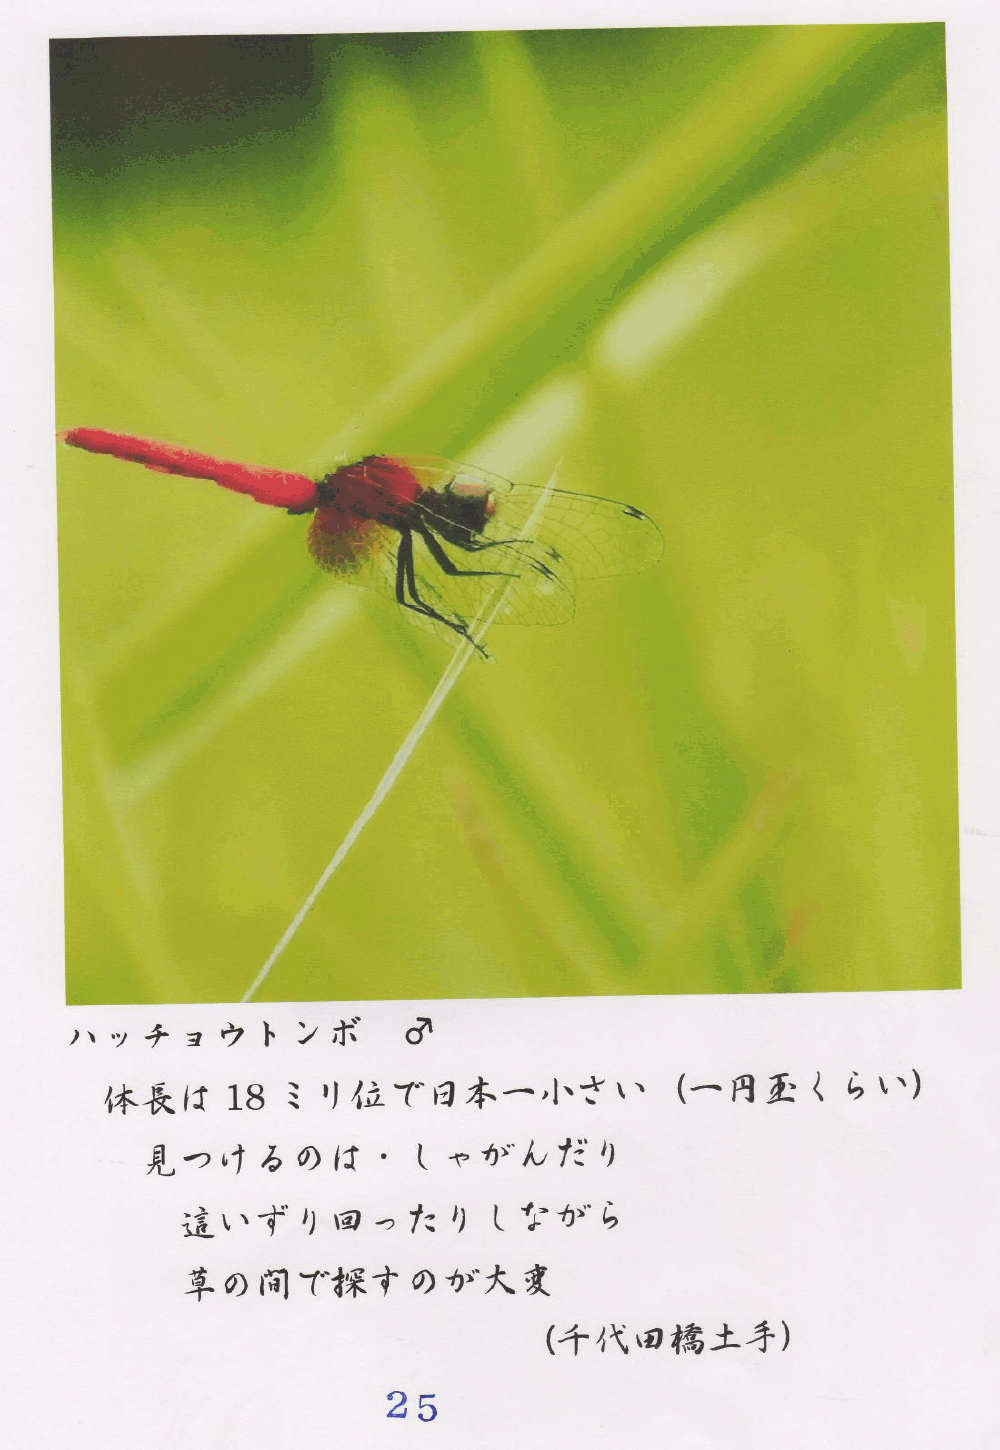 ハッチョウトンボ ♂
体長は18ミリ位で日本一小さい（一円玉くらい）
見つけるのは・しゃがんだり
這いずり回ったりしながら
草の間で探すのが大変
（千代田橋土手）
25